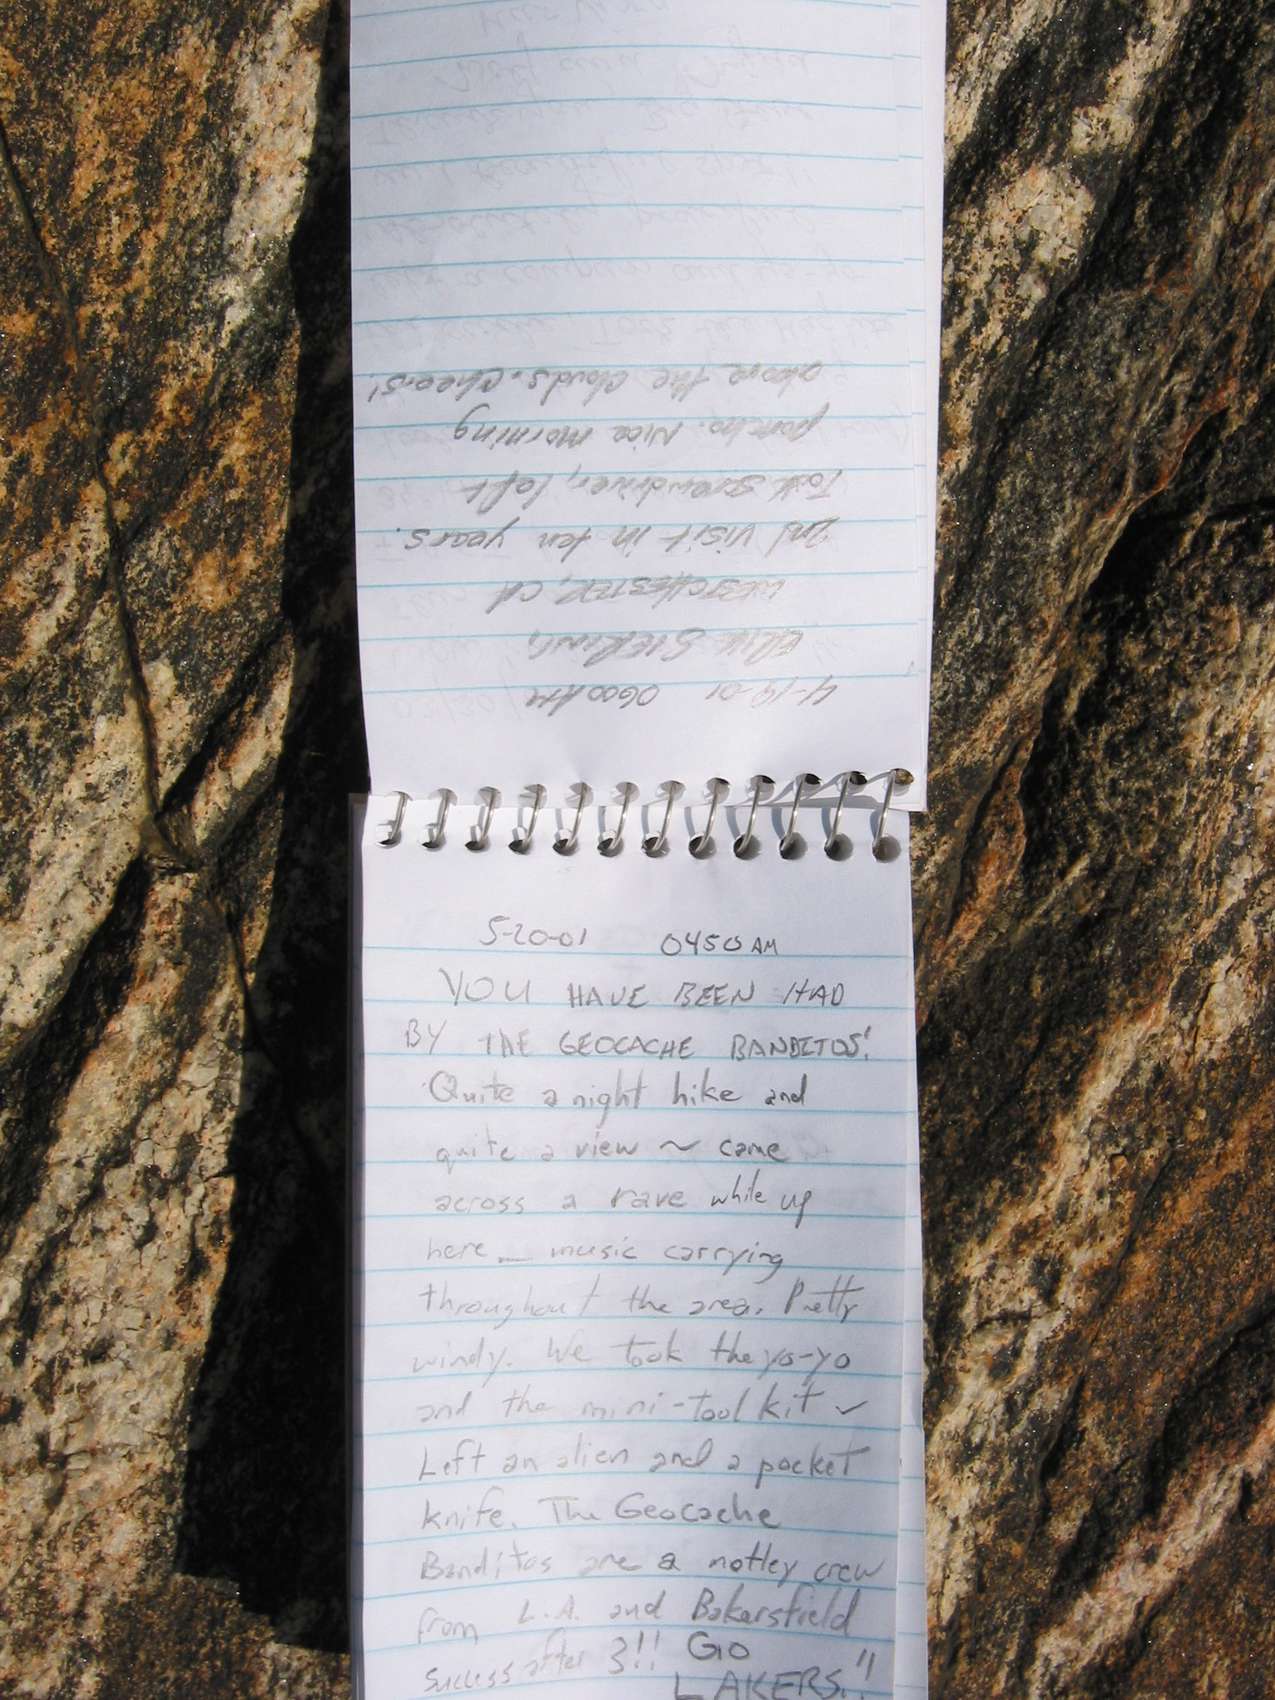 4-19-01 0600 Hr
ERIK SIERING,
WESTCHESTER, CA
2nd visit in ten years.
Took screwdriver, left
poncho. Nice morning
above the clouds. Cheers!
5-20-01 0450 AM
YOU HAVE BEEN HAD
BY THE GEOCACHE BANDITOS!
Quite a night hike and
quite a view ~ came
across a rave while up
here _ music carrying
throughout the area. Pretty
windy. We took the yo-yo
and the mini-tool kit ~
Left an alien and a pocket
knife. The Geocache
Banditos are a motley crew
from L.A. and Bakersfield
Success after 3!! GO
LAKERS!!